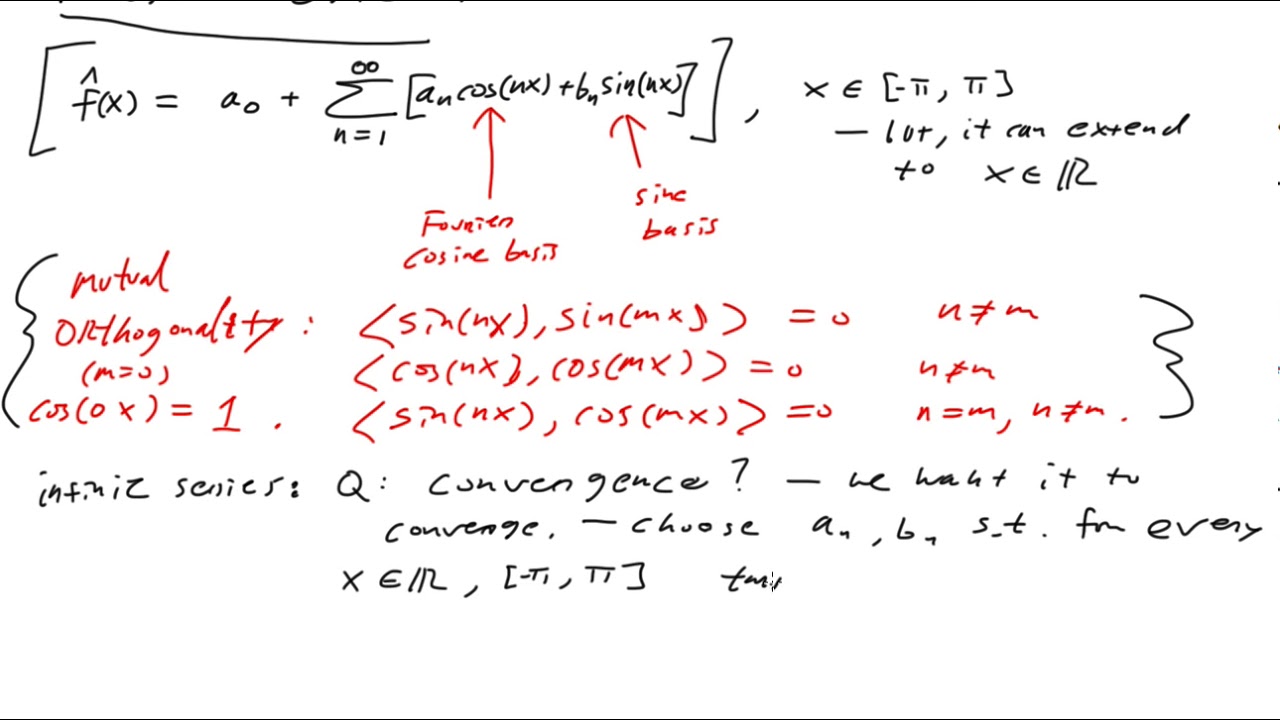 f̂(x) = a₀ + ∑_{n=1}^{∞} [aₙcos(nx) + bₙsin(nx)], x ∈ [-π, π]
— but, it can extend
to x ∈ ℝ
Fourier
cosine basis
sine
basis
mutual
ORthogonality: <sin(nx), sin(mx)> = 0 n≠m
<cos(nx), cos(mx)> = 0 n≠m
(m=0)
cos(0x) = 1. <sin(nx), cos(mx)> = 0 n=m, n≠m.
infinite series: Q: convergence? — we want it to
converge. — choose aₙ, bₙ s.t. for every
x ∈ ℝ, [-π, π]